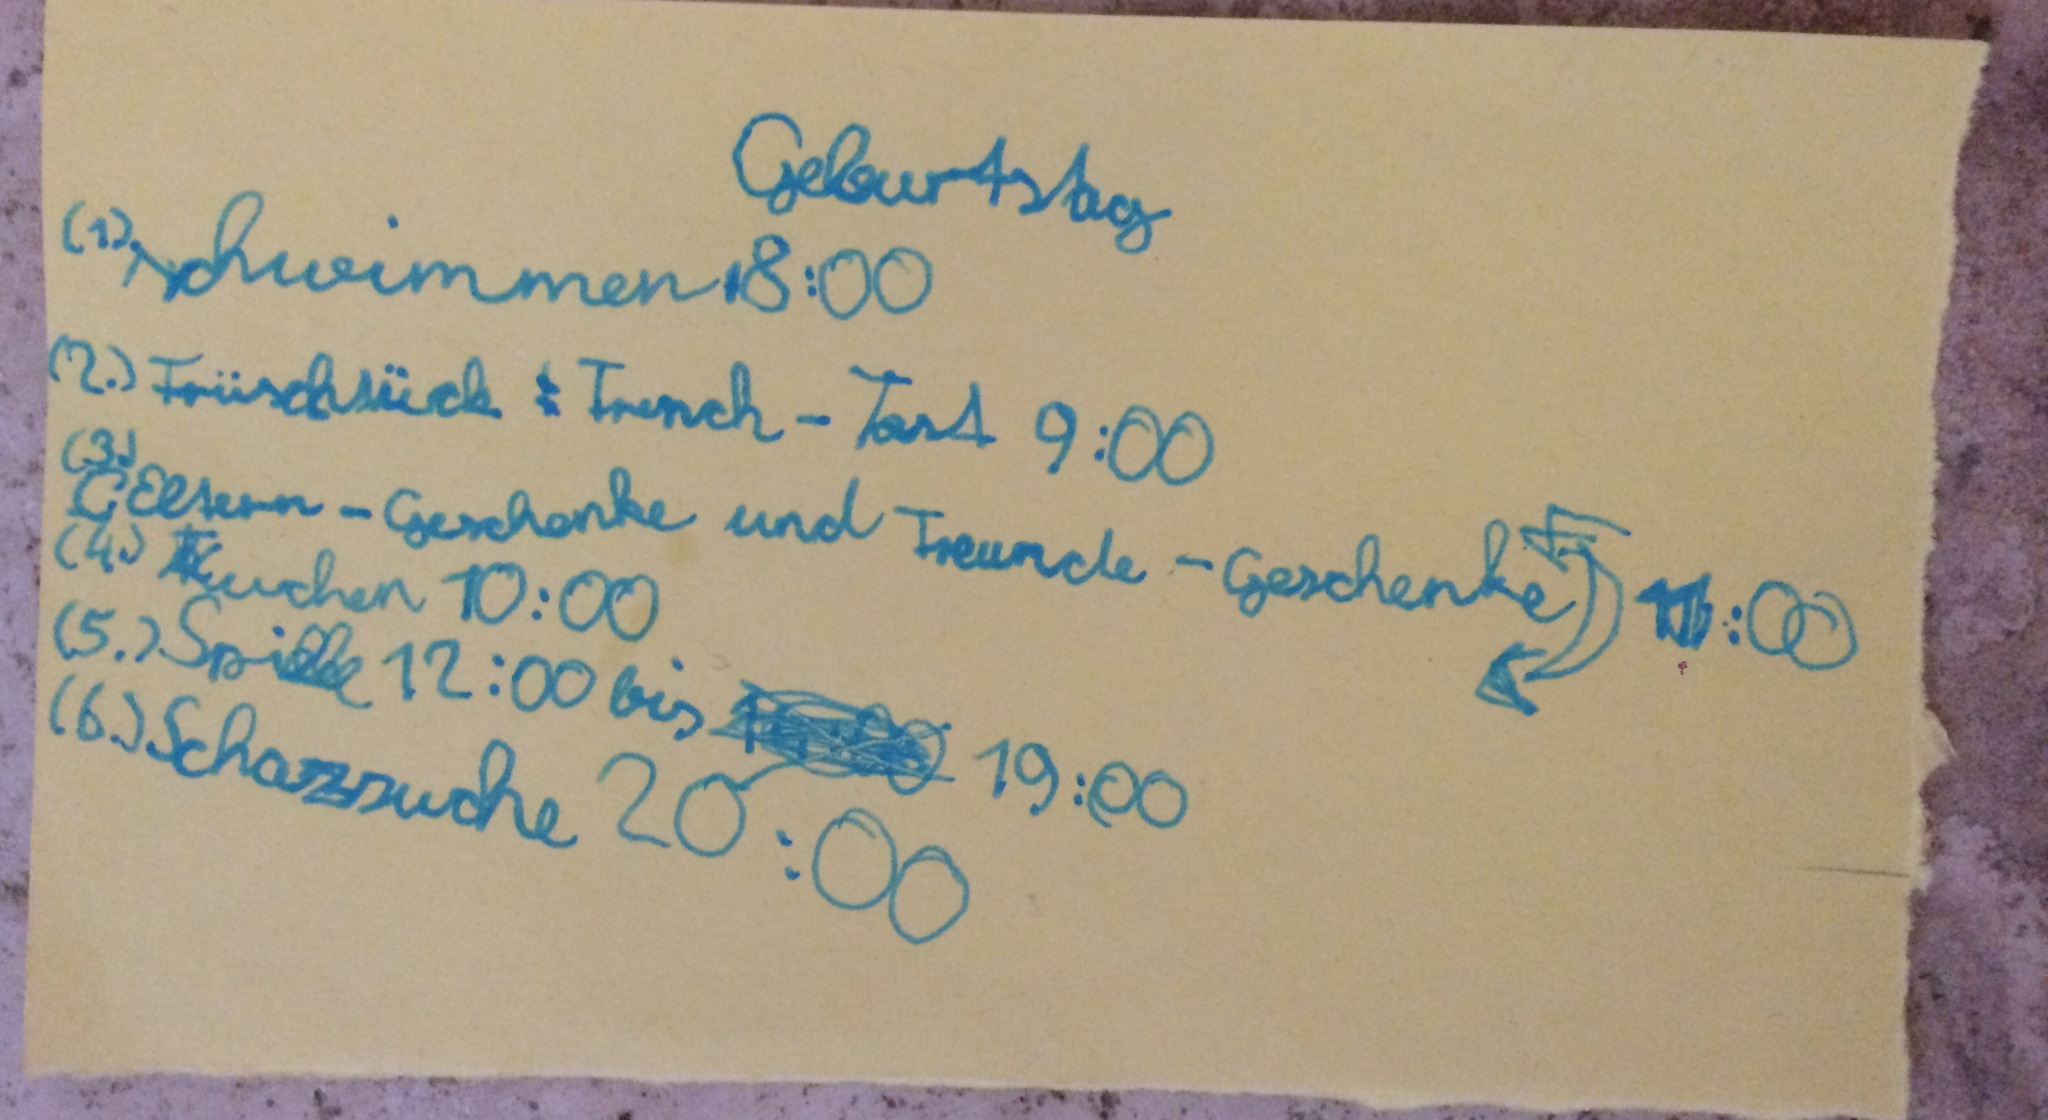 Geburtstag
(1.) schwimmen 8:00
(2.) Früschsück & Trench - Tast 9:00
(3.)
Eltern - Geschenke und Freunde - Geschenke 11:00
(4.) Kuchen 10:00
(5.) Spielle 12:00 bis 19:00
(6.) Schazzsuche 20:00